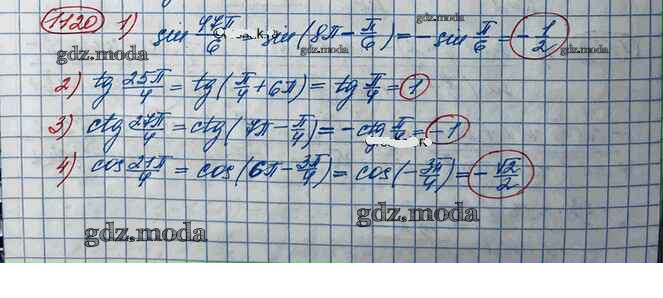 1120 1) sin 47π/6 = sin(8π - π/6) = - sin π/6 = - 1/2
gdz.moda
gdz.moda
gdz.moda
2) tg 25π/4 = tg(π/4 + 6π) = tg π/4 = 1
3) ctg 27π/4 = ctg(7π - π/4) = - ctg π/4 = - 1
4) cos 21π/4 = cos(6π - 3π/4) = cos(- 3π/4) = - √2/2
gdz.moda
gdz.moda